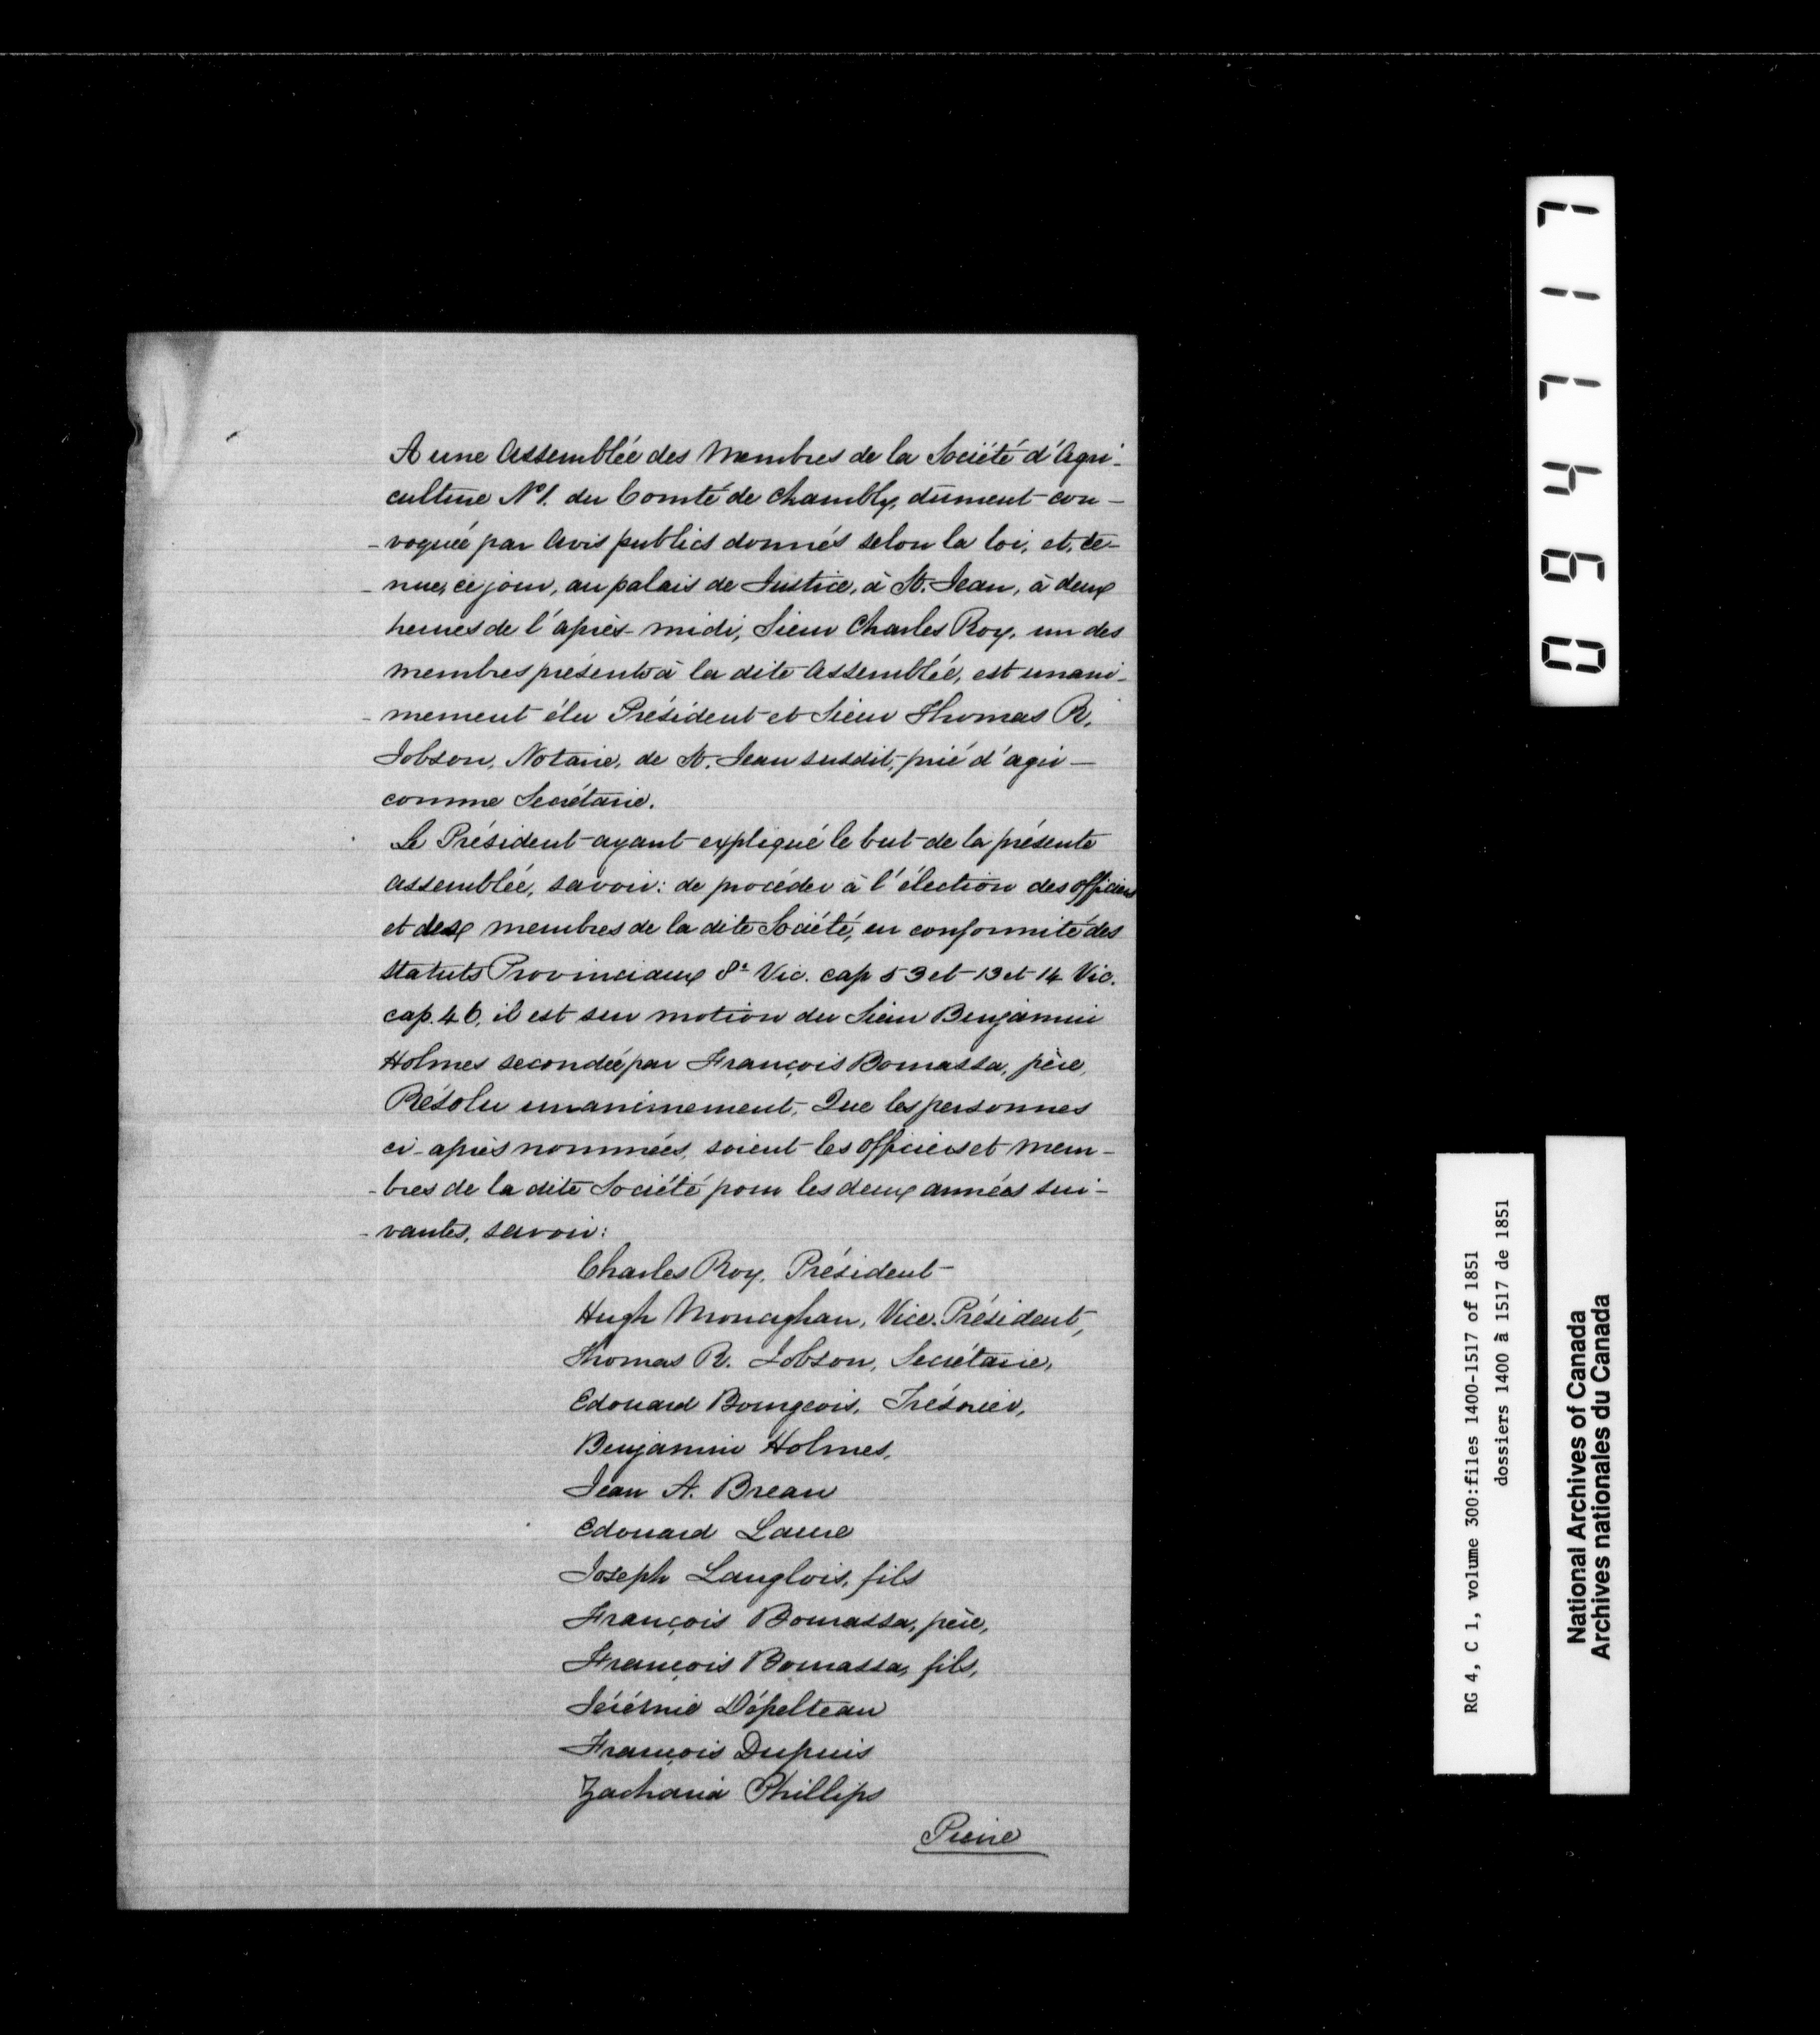 A une Assemblée des Membres de la Société d'Agri-
culture No 1. du Comté de Chambly, dûment con-
-voquée par Avis publics donnés selon la loi, et, te-
-nue, ce jour, au palais de Justice, à St. Jean, à deux
heures de l'après-midi, Sieur Charles Roy, un des
membres présents à la dite Assemblée, est unani-
-mement élu Président et Sieur Thomas R.
Jobson, Notaire, de St. Jean susdit, prié d'agir
comme Secrétaire.
Le Président ayant expliqué le but de la présente
assemblée, savoir: de procéder à l'élection des officiers
et des membres de la dite Société, en conformité des
statuts Provinciaux 8e Vic. cap 53 et 13 et 14 Vic.
cap. 46, il est sur motion du Sieur Benjamin
Holmes secondée par François Bourassa, père,
Résolu unanimement, Que les personnes
ci-après nommées, soient les officiers et mem-
-bres de la dite Société pour les deux années sui-
-vantes, savoir:
Charles Roy, Président
Hugh Monaghan, Vice-Président,
Thomas R. Jobson, Secrétaire,
Edouard Bourgeois, Trésorier,
Benjamin Holmes,
Jean A. Breau
Edouard
Joseph Langlois, fils
François Bourassa, père,
François Bourassa, fils,
Jérémie Dépelteau
François Dupuis
Zacharia Phillips
Pierre
094717
RG 4, C 1, volume 300:files 1400-1517 of 1851
dossiers 1400 à 1517 de 1851
National Archives of Canada
Archives nationales du Canada